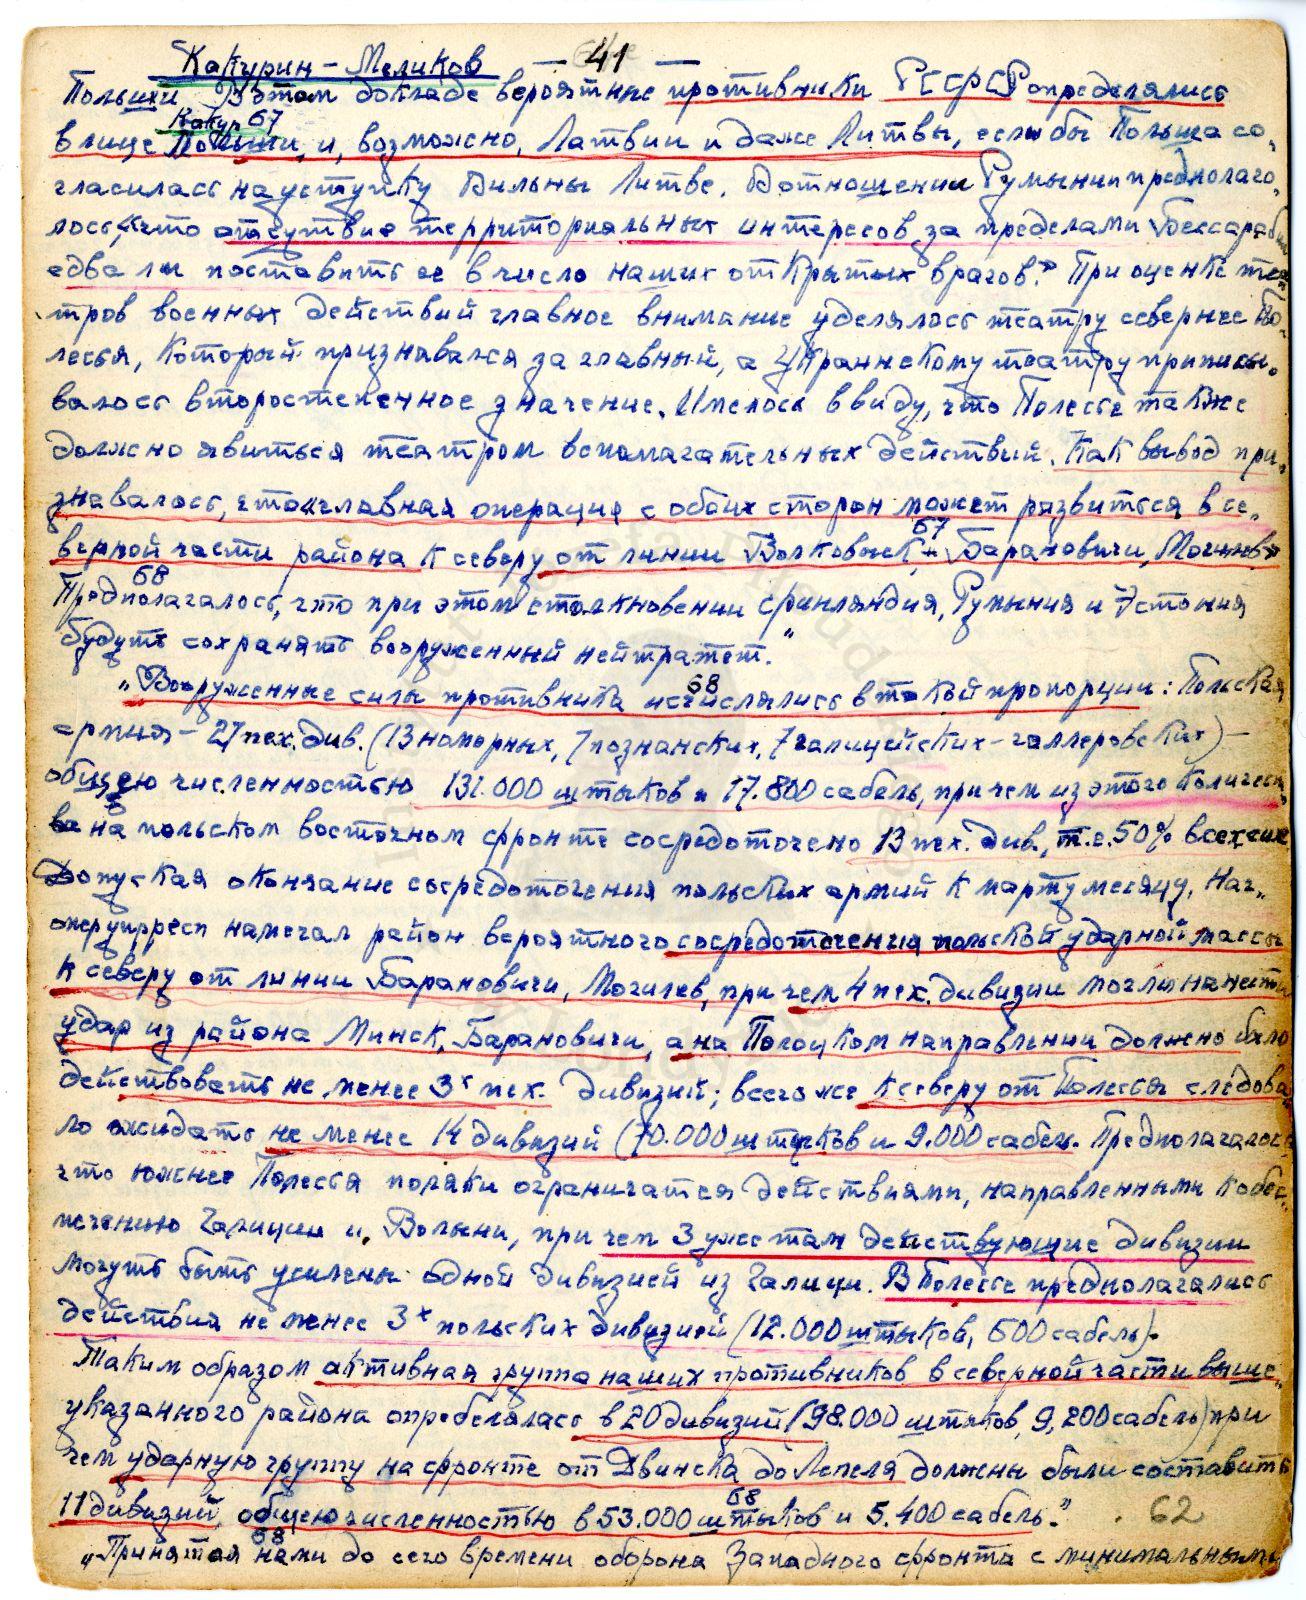 Какурин – Меликов — 41 —
Польши. В этом докладе вероятные противники РСФСР определялись
Какур 67
в лице Польши, и, возможно, Латвии и даже Литвы, если бы Польша со-
гласилась на уступку Вильны Литве. В отношении Румынии предполага-
лось, "что отсутствие территориальных интересов за пределами Бессарабии
едва ли поставить ее в число наших открытых врагов." При оценке теа-
тров военных действий главное внимание уделялось театру севернее По-
лесья, который признавался за главный, а Украинскому театру приписы-
валось второстепенное значение. Имелось ввиду, что Полесье также
должно явиться театром вспомагательных действий. Как вывод при-
знавалось, что "главная операция с обоих сторон может развиться в се-
верной части района к северу от линии Волковыск, Барановичи, Могилев"
67
68
Предполагалось, что при этом столкновении Финляндия, Румыния и Эстония
будут сохранять вооруженный нейтралитет."
„Вооруженные силы противника исчислялись в такой пропорции: Польская
68
армия – 27 пех. див. (13 номорных, 7 познанских, 7 галицейских – галлеровских) –
общею численностью 131.000 штыков и 17.800 сабель, при чем из этого количест-
ва на польском восточном фронте сосредоточено 13 пех. див., т.е. 50% всех сил
Допуская окончание сосредоточения польских армий к марту месяцу, Нач-
оперупрресп намечал район вероятного сосредоточения польской ударной массы
к северу от линии Барановичи, Могилев, при чем 4 пех. дивизии могли нанести
удар из района Минск, Барановичи, а на Полоцком направлении должно было
действовать не менее 3х пех. дивизий; всего же к северу от Полесья следова-
ло ожидать не менее 14 дивизий (70.000 штыков и 9.000 сабель. Предполагалось,
что южнее Полесья поляки ограничатся действиями, направленными к обес-
печению Галиции и, Волыни, при чем 3 уже там действующие дивизии
могут быть усилены одной дивизией из Галици. В Полесье предполагались
действия не менее 3х польских дивизий (12.000 штыков, 600 сабель).
Таким образом активная группа наших противников в северной части выше-
указанного района определялась в 20 дивизий (98.000 штыков, 9,200 сабель) при
чем ударную группу на фронте от Двинска до Лепеля должны были составить
11 дивизий, общею численностью в 53.000 штыков и 5.400 сабель."
68
62
68
„Принятая нами до сего времени оборона Западного фронта с минимальными